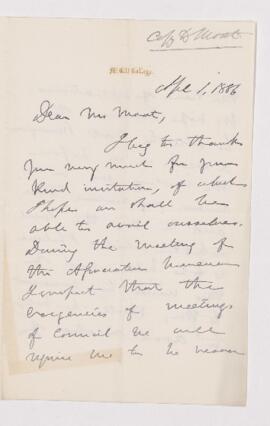 McGill College.
Apl 1, 1886
Dear Mr Moat,
I beg to thank
you very much for your
kind invitation, of which
I hope we shall be
able to avail ourselves.
During the meeting of
the Association however
I expect that the
exigencies of meetings
of Council &c will
require me to be nearer